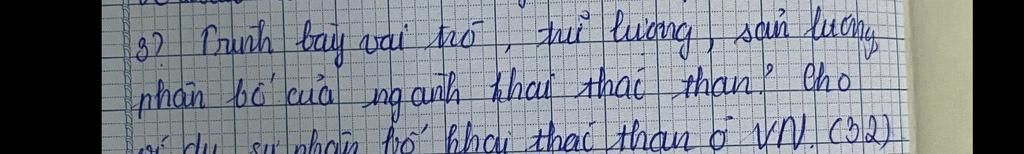 8) Trình bày vai trò, trữ lượng, sản lượng,
phân bố của ngành khai thác than? Cho
ví dụ sự phân bố khai thác than ở VN. (32)